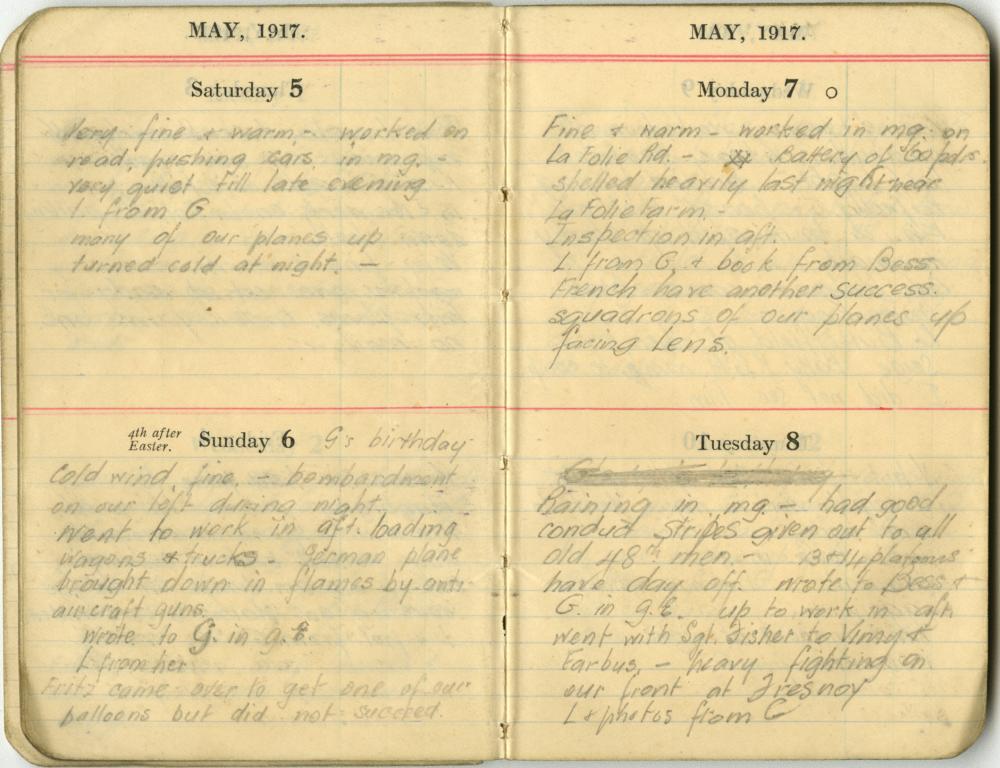 MAY, 1917.
Saturday 5
Very fine & warm - worked on
road, pushing cars in mg. -
very quiet till late evening.
L. from G.
many of our planes up
turned cold at night. -
4th after
Easter. Sunday 6 G's birthday
Cold wind, fine, - bombardment
on our left during night.
Went to work in aft. loading
wagons & trucks - German plane
brought down in flames by anti-
aircraft guns
wrote to G. in g.E.
L from her
Fritz came over to get one of our
balloons but did not succeed.
MAY, 1917.
Monday 7
Fine & warm - worked in mg. on
La Folie Rd. - Battery of 60 pdrs.
shelled heavily last night near
La Folie Farm. -
Inspection in aft.
L. from G. & book from Bess.
French have another success.
squadrons of our planes up
facing Lens.
Tuesday 8
Raining in mg - had good
conduct stripes given out to all
old 48th men. - 13 & 14 platoons
have day off. wrote to Bess &
G. in g.E. up to work in aft
went with Sgt. Fisher to Vimy &
Farbus, - heavy fighting on
our front at Fresnoy
L & photos from G